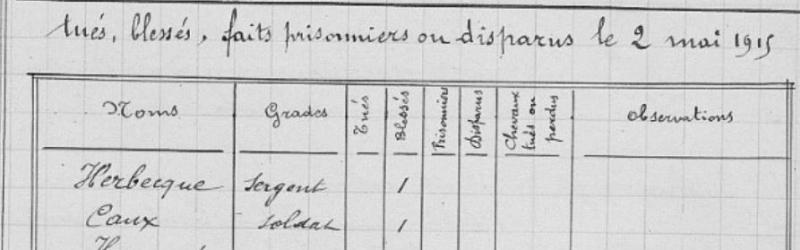 tués, blessés, faits prisonniers ou disparus le 2 mai 1915
Noms Grades Tués Blessés Prisonniers Disparus Chevaux tués ou perdus Observations
Herbecque Sergent 1
Caux Soldat 1